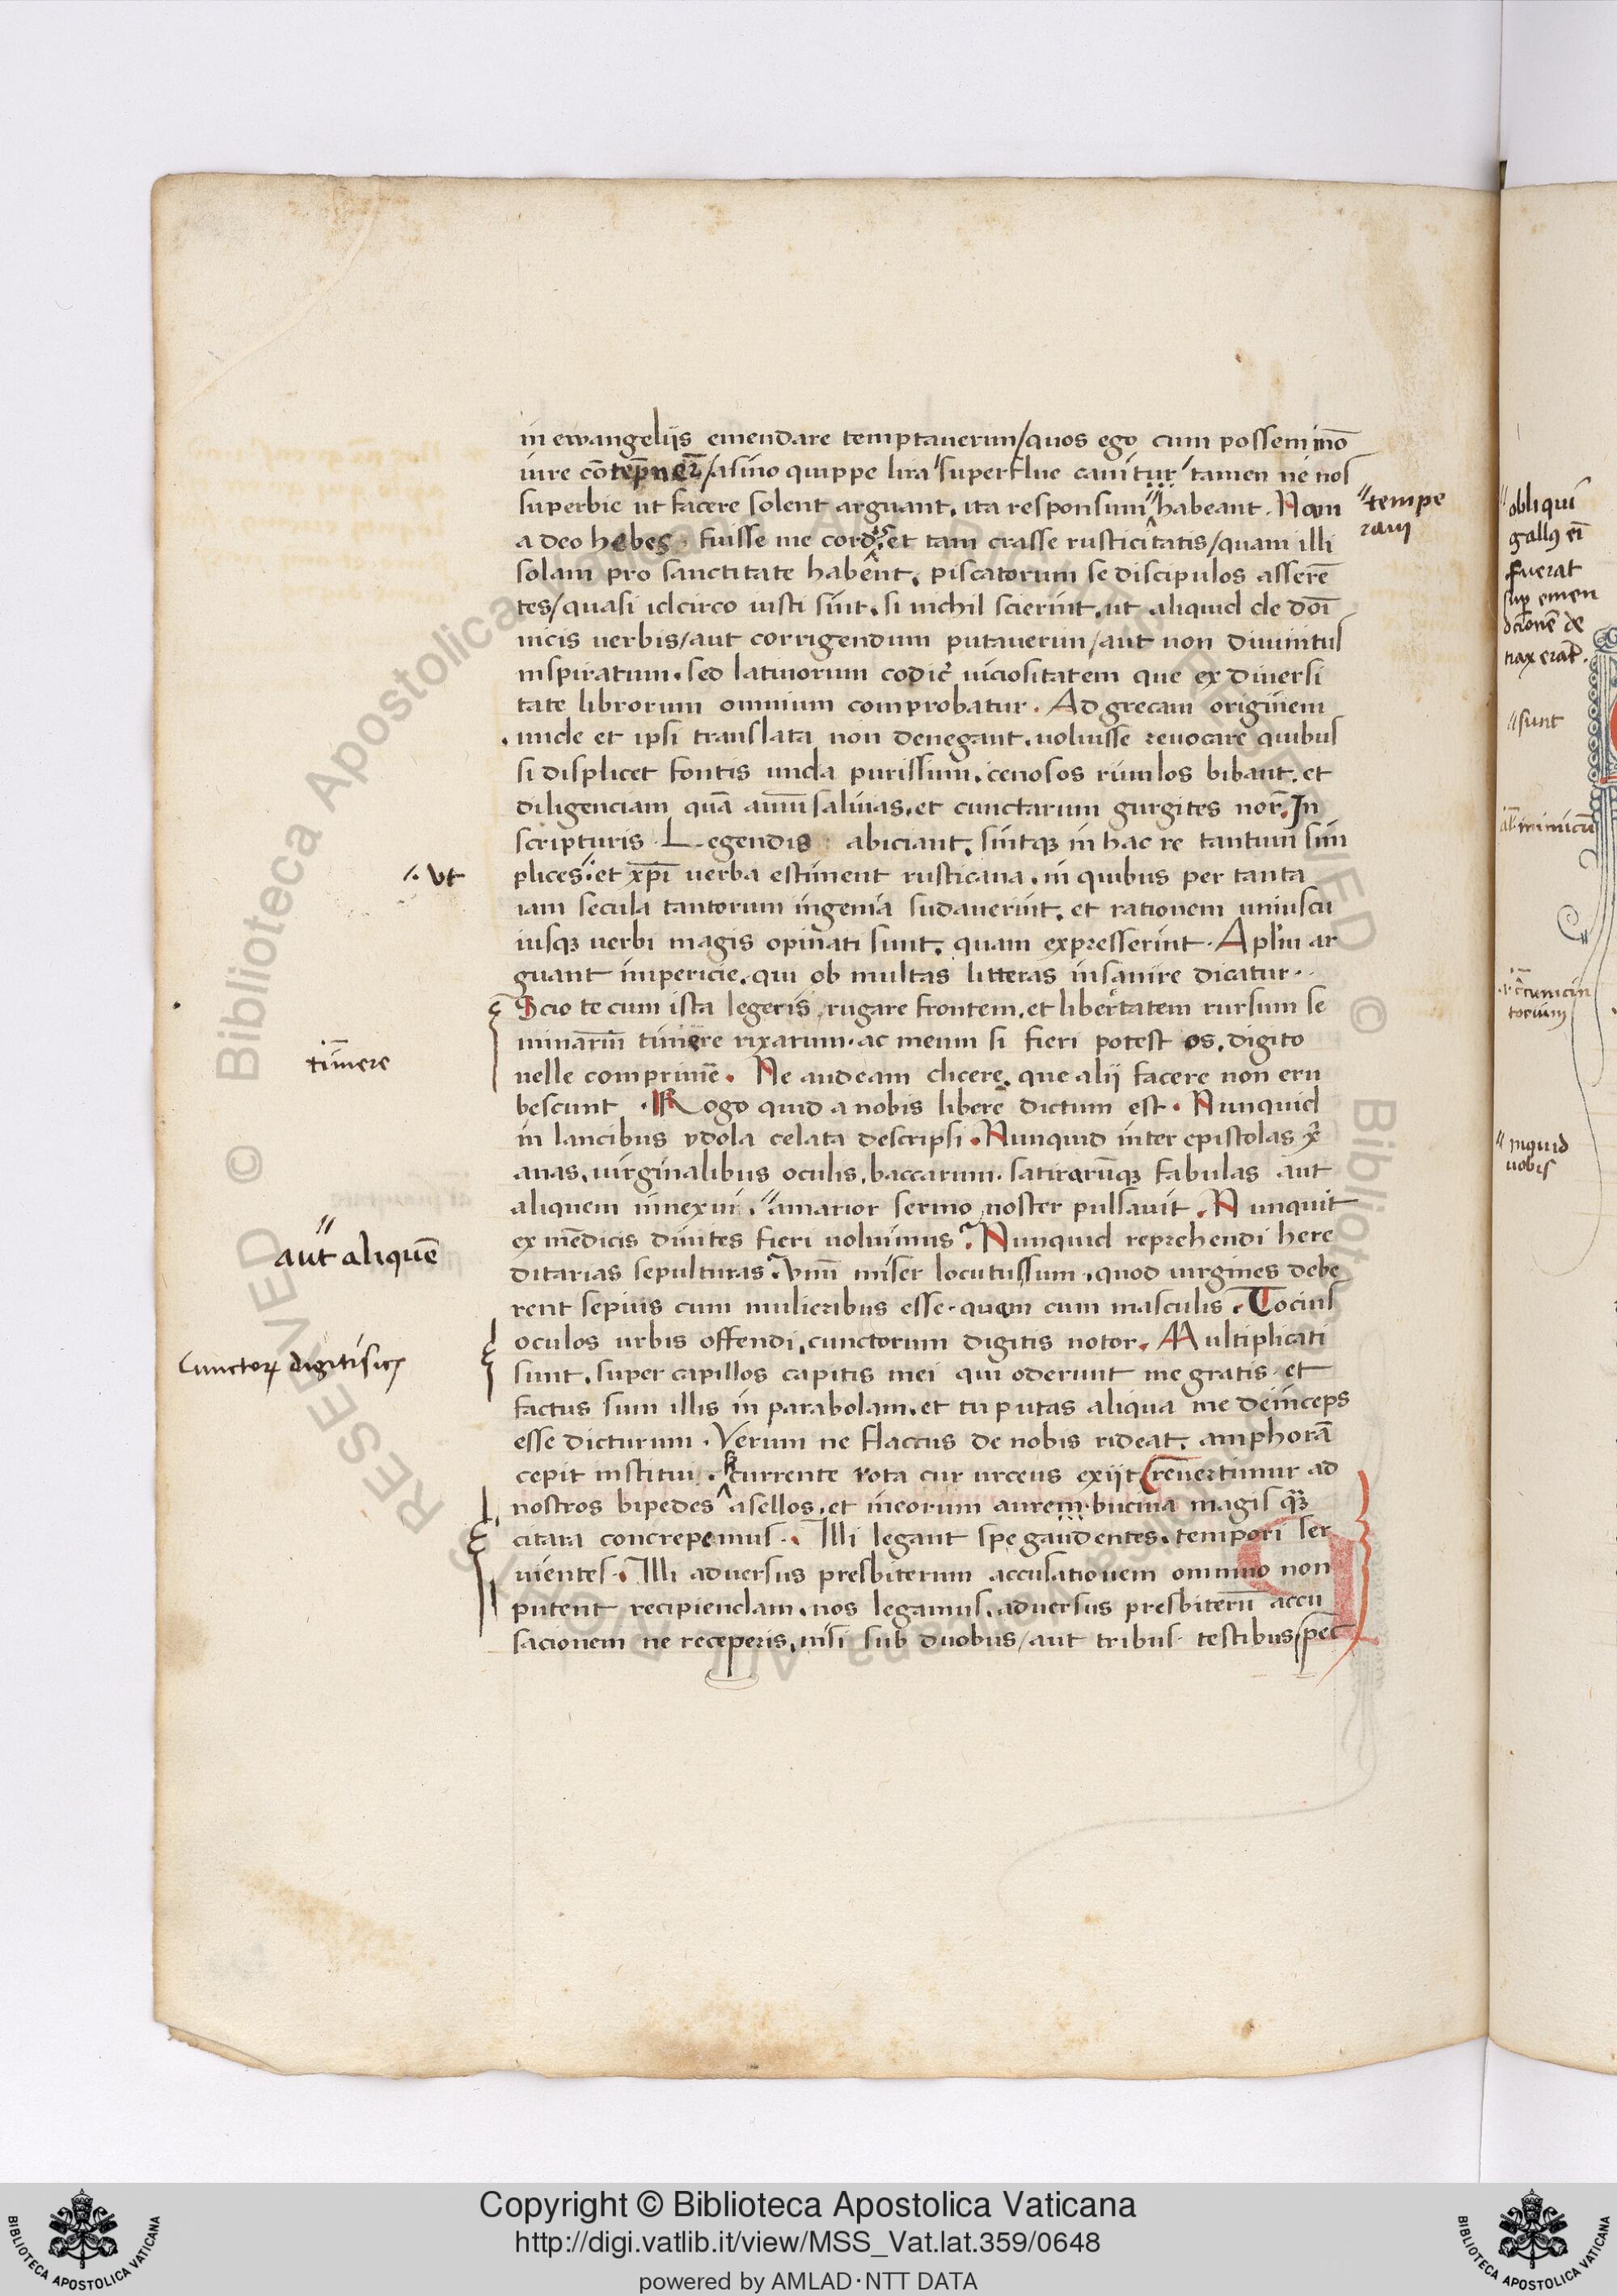 in ewangeliis emendare temptauerun/quos ego cum possem mō
iure cōtēpnerꝫ/asino quippe lira superflue canitur tamen ne nos
superbie ut facere solent arguant. ita responsum habeant. Nam
"tempe
ram
a deo hebes. fuisse me cordis et tam crasse rusticitatis/quam illi
solam pro sanctitate habent. piscatorum se discipulos asserē
tes/quasi idcirco iusti sint. si nichil scierint. ut aliquid de doī
nicis uerbis/aut corrigendum putauerim/aut non diuinitus
inspiratum. sed latinorum codic̄ uiciositatem que ex diuersi
tate librorum omnium comprobatur. Ad grecam originem
unde et ipsi translata non denegant. uoluisse reuocare quibus
si displicet fontis unda purissim. cenosos riuulos bibant. et
diligenciam quā auium saliuas. et cunctarum gurgites nor̄. In
scripturis Legendis abiciant. sintqꝫ in hac re tantum sim
./. vt
plices. et xp̄i uerba estiment rusticana. in quibus per tanta
iam secula tantorum ingenia sudauerint. et rationem uniuscu
iusqꝫ uerbi magis opinati sunt. quam expresserint. Apl'm ar
guant impericie. qui ob multas litteras insanire dicatur.
Scio te cum ista legeris rugare frontem. et libertatem rursum se
minariū timere rixarum. ac meum si fieri potest os. digito
tīmere
uelle comprimē. Ne audeam dicere. que alij facere non eru
bescunt. Rogo quid a nobis libere dictum est. Nunquid
in lancibus ydola celata descripsi. Nunquid inter epistolas xr̄
anas. uirginalibus oculis. baccarum. satirarūqꝫ fabulas aut
aliquem innexui. "amarior sermo noster pulsauit. Nunquit
"
aut aliquē
ex mēdicis diuites fieri uoluimus? Nunquid reprehendi here
ditarias sepulturas? vnū miser locutussum. quod uirgines debe
rent sepius cum mulieribus esse. quam cum masculis. Tocius
oculos urbis offendi. cunctorum digitis notor. Multiplicati
Cunctorꝝ digitis
sunt. super capillos capitis mei qui oderunt me gratis. et
factus sum illis in parabolam. et tu putas aliqua me deinceps
esse dicturum. Verum ne flaccus de nobis rideat. amphorā
cepit institui. currente rota cur urceus exiit reuertimur ad
nostros bipedes asellos. et ineorum aurem. bucina magis q̄ꝫ
citara concrepemus. Illi legant spe gaudentes. tempori ser
uientes. Illi aduersus presbiterum accusationem omnino non
putent recipiendam. nos legamus. aduersus presbiterū accu
sacionem ne receperis. nisi sub duobus/aut tribus testibus pec̄
"obliqui
gallꝰ eī
fuerat
sup emen
dcionē de
trax erat.
"sunt
al' inimicū
torium
"inquid
uobis
© Biblioteca Apostolica Vaticana ALL RIGHTS RESERVED
Copyright © Biblioteca Apostolica Vaticana
http://digi.vatlib.it/view/MSS_Vat.lat.359/0648
powered by AMLAD·NTT DATA
BIBLIOTECA APOSTOLICA VATICANA
BIBLIOTECA APOSTOLICA VATICANA